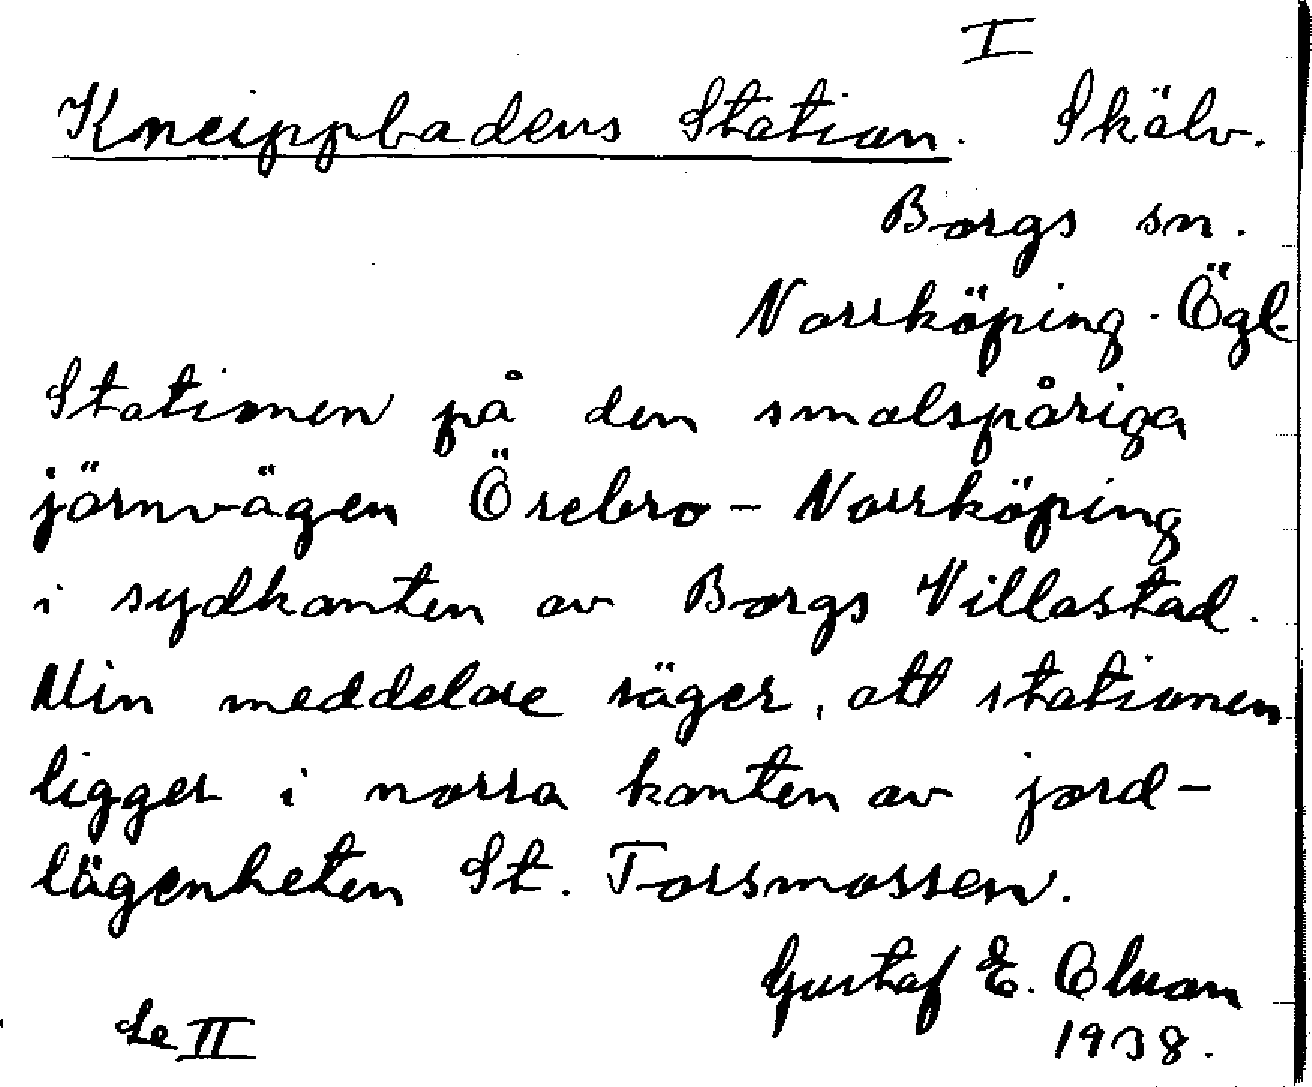 I
Kneippbadens Station. Skälv.
Borgs sn.
Norrköping. Ögl.
Stationen på den smalspåriga
järnvägen Örebro - Norrköping
i sydkanten av Borgs Villastad.
Min meddelare säger, att stationen
ligger i norra kanten av jord-
lägenheten St. Torsmossen.
Gustaf E. Olson
Se II 1938.